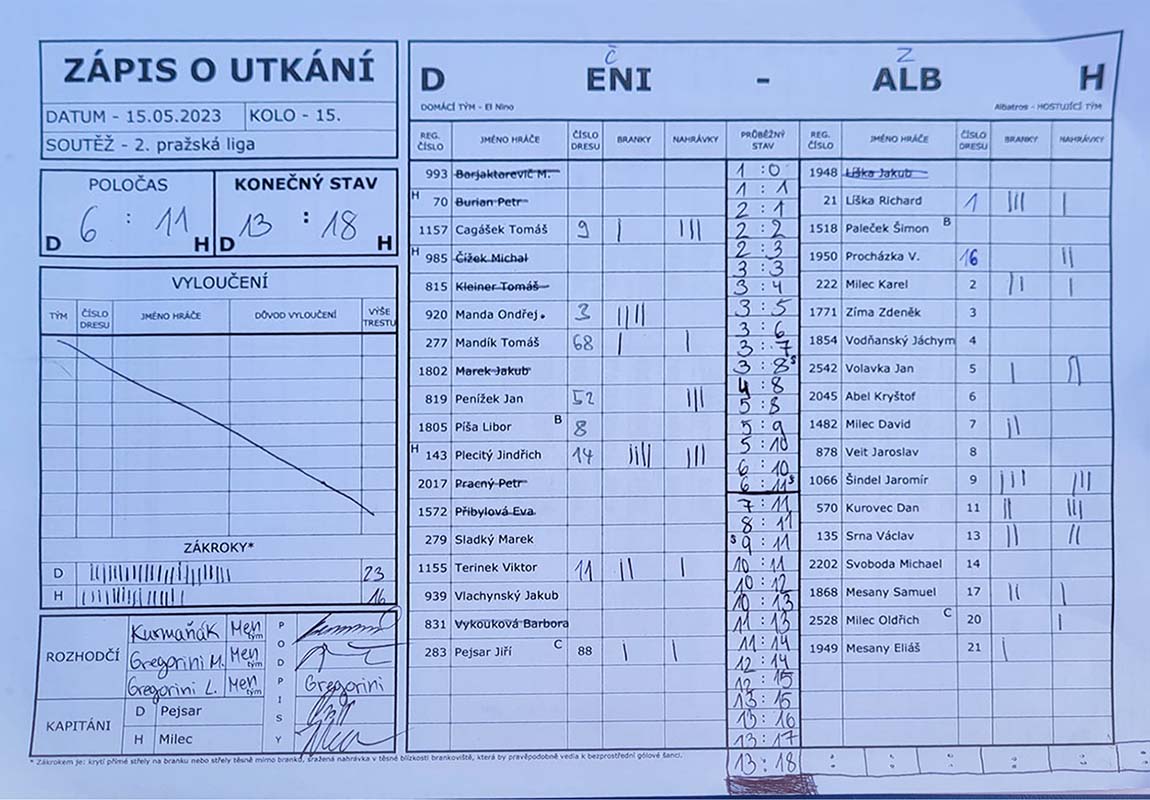 ZÁPIS O UTKÁNÍ
DATUM - 15.05.2023 KOLO - 15.
SOUTĚŽ - 2. pražská liga
POLOČAS
6 : 11
D H
KONEČNÝ STAV
13 : 18
D H
VYLOUČENÍ
TÝM ČÍSLO DRESU JMÉNO HRÁČE DŮVOD VYLOUČENÍ VÝŠE TRESTU
ZÁKROKY*
D 23
H 16
ROZHODČÍ
Kurmaňák Men tým
Gregorini M. Men tým
Gregorini L. Men tým Gregorini
PODPISY
KAPITÁNI
D Pejsar
H Milec
Č Z
D ENI - ALB H
DOMÁCÍ TÝM - El Nino Albatros - HOSTUJÍCÍ TÝM
REG. ČÍSLO JMÉNO HRÁČE ČÍSLO DRESU BRANKY NAHRÁVKY PRŮBĚŽNÝ STAV REG. ČÍSLO JMÉNO HRÁČE ČÍSLO DRESU BRANKY NAHRÁVKY
993 Borjaktarevič M.
H 70 Burian Petr
1157 Cagášek Tomáš 9 | |||
H 985 Čížek Michal
815 Kleiner Tomáš
920 Manda Ondřej 3 ||||
277 Mandík Tomáš 68 | |
1802 Marek Jakub
819 Penížek Jan 52 |||
1805 Píša Libor B 8
H 143 Plecitý Jindřich 14 |||| |||
2017 Pracný Petr
1572 Přibylová Eva
279 Sladký Marek
1155 Terinek Viktor 11 || |
939 Vlachynský Jakub
831 Vykouková Barbora
283 Pejsar Jiří C 88 | |
1 : 0
1 : 1
2 : 1
2 : 2
2 : 3
3 : 3
3 : 4
3 : 5
3 : 6
3 : 7
3 : 8 s
4 : 8
5 : 8
5 : 9
5 : 10
6 : 10
6 : 11 s
7 : 11
8 : 11
s 9 : 11
10 : 11
10 : 12
10 : 13
11 : 13
11 : 14
12 : 14
12 : 15
13 : 15
13 : 16
13 : 17
13 : 18
1948 Líška Jakub
21 Líška Richard 1 ||| |
1518 Paleček Šimon B
1950 Procházka V. 16 ||
222 Milec Karel 2 || |
1771 Zíma Zdeněk 3
1854 Vodňanský Jáchym 4
2542 Volavka Jan 5 | ||
2045 Abel Kryštof 6
1482 Milec David 7 ||
878 Veit Jaroslav 8
1066 Šindel Jaromír 9 ||| |||
570 Kurovec Dan 11 || |||
135 Srna Václav 13 || ||
2202 Svoboda Michael 14
1868 Mesany Samuel 17 || |
2528 Milec Oldřich C 20 |
1949 Mesany Eliáš 21 |
* Zákrokem je: krytí přímé střely na branku nebo střely těsně mimo branku, sražená nahrávka v těsné blízkosti brankoviště, která by pravěpodobně vedla k bezprostřední gólové šanci.